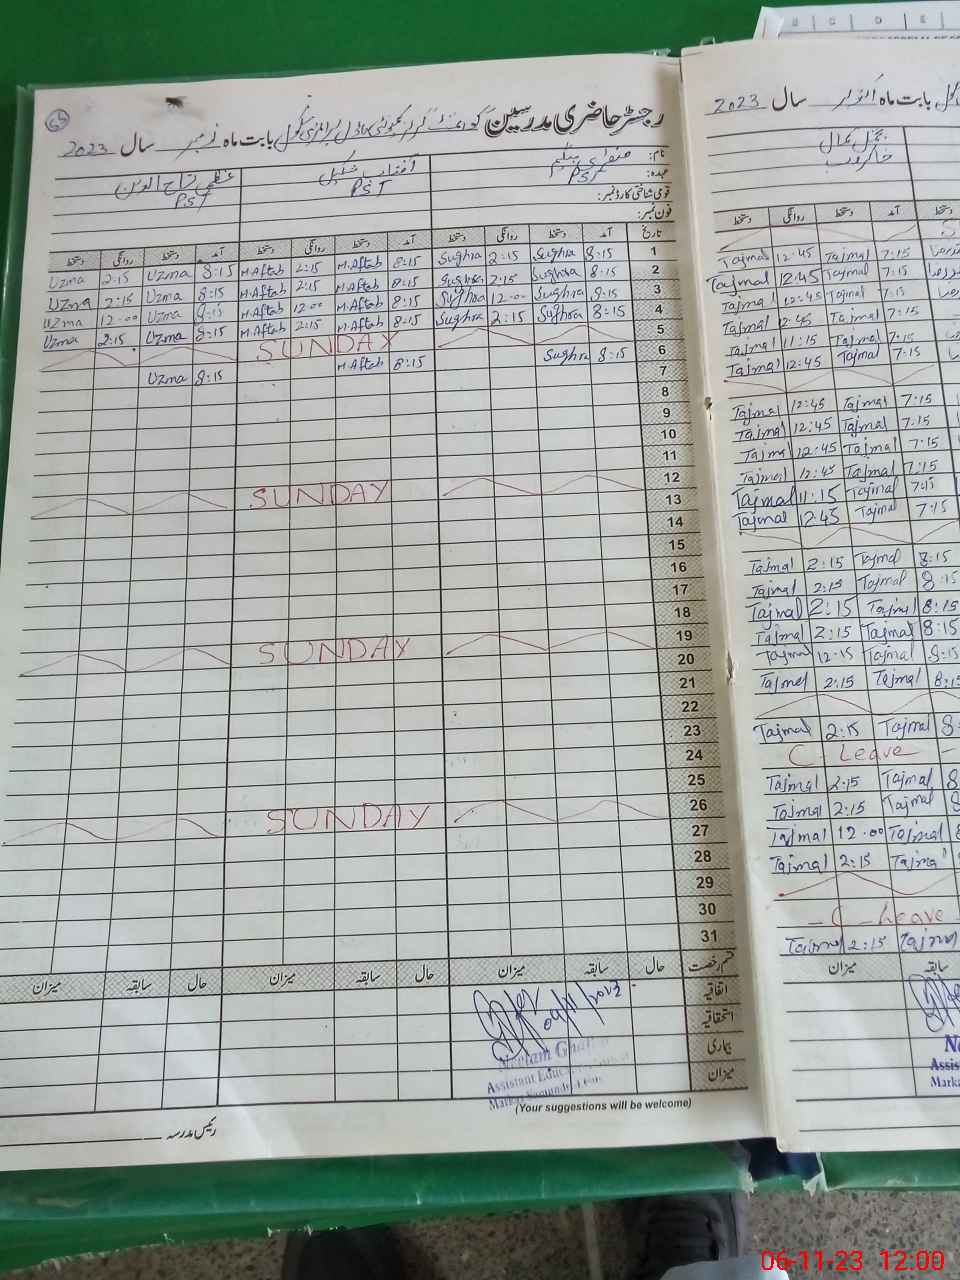 65
رجسٹر حاضری مدرسین گورنمنٹ گرلز کمیونٹی ماڈل پرائمری سکول بابت ماہ نومبر سال 2023
نام: صغراں بیگم آفتاب شکیل عظمیٰ تاج الدین
عہدہ: PST PST PST
قومی شناختی کارڈ نمبر:
فون نمبر:
تاریخ آمد دستخط روانگی دستخط آمد دستخط روانگی دستخط آمد دستخط روانگی دستخط
Uzma 2:15 Uzma 8:15 M.Aftab 2:15 M.Aftab 8:15 Sughra 2:15 Sughra 8:15 1
Uzma 2:15 Uzma 8:15 M.Aftab 2:15 M.Aftab 8:15 Sughra 2:15 Sughra 8:15 2
Uzma 12:00 Uzma 8:15 M.Aftab 12:00 M.Aftab 8:15 Sughra 12:00 Sughra 8:15 3
Uzma 2:15 Uzma 8:15 M.Aftab 2:15 M.Aftab 8:15 Sughra 2:15 Sughra 8:15 4
SUNDAY 5
Uzma 8:15 M.Aftab 8:15 Sughra 8:15 6
7
8
9
10
11
SUNDAY 12
13
14
15
16
17
18
SUNDAY 19
20
21
22
23
24
25
SUNDAY 26
27
28
29
30
31
قسم رخصت حال سابقہ میزان حال سابقہ میزان حال سابقہ میزان
اتفاقیہ
استحقاقیہ
بیماری
میزان
Neelam
Assistant
(Your suggestions will be welcome)
رئیس مدرسہ
سکول بابت ماہ اکتوبر سال 2023
خاکروب
آمد دستخط روانگی دستخط
Tajmal 12:45 Tajmal 7:15
Tajmal 12:45 Tajmal 7:15
Tajmal 12:45 Tajmal 7:15
Tajmal 12:45 Tajmal 7:15
Tajmal 11:15 Tajmal 7:15
Tajmal 12:45 Tajmal 7:15
Tajmal 12:45 Tajmal 7:15
Tajmal 12:45 Tajmal 7:15
Tajmal 12:45 Tajmal 7:15
Tajmal 12:45 Tajmal 7:15
Tajmal 11:15 Tajmal 7:15
Tajmal 12:45 Tajmal 7:15
Tajmal 2:15 Tajmal 8:15
Tajmal 2:15 Tajmal 8:15
Tajmal 2:15 Tajmal 8:15
Tajmal 2:15 Tajmal 8:15
Tajmal 12:15 Tajmal 8:15
Tajmal 2:15 Tajmal 8:15
Tajmal 2:15 Tajmal 8
C-Leave
Tajmal 2:15 Tajmal 8
Tajmal 2:15 Tajmal 8
Tajmal 12:00 Tajmal 8
Tajmal 2:15 Tajmal
C-Leave
Tajmal 2:15 Tajmal
سابقہ میزان
06-11-23 12:00